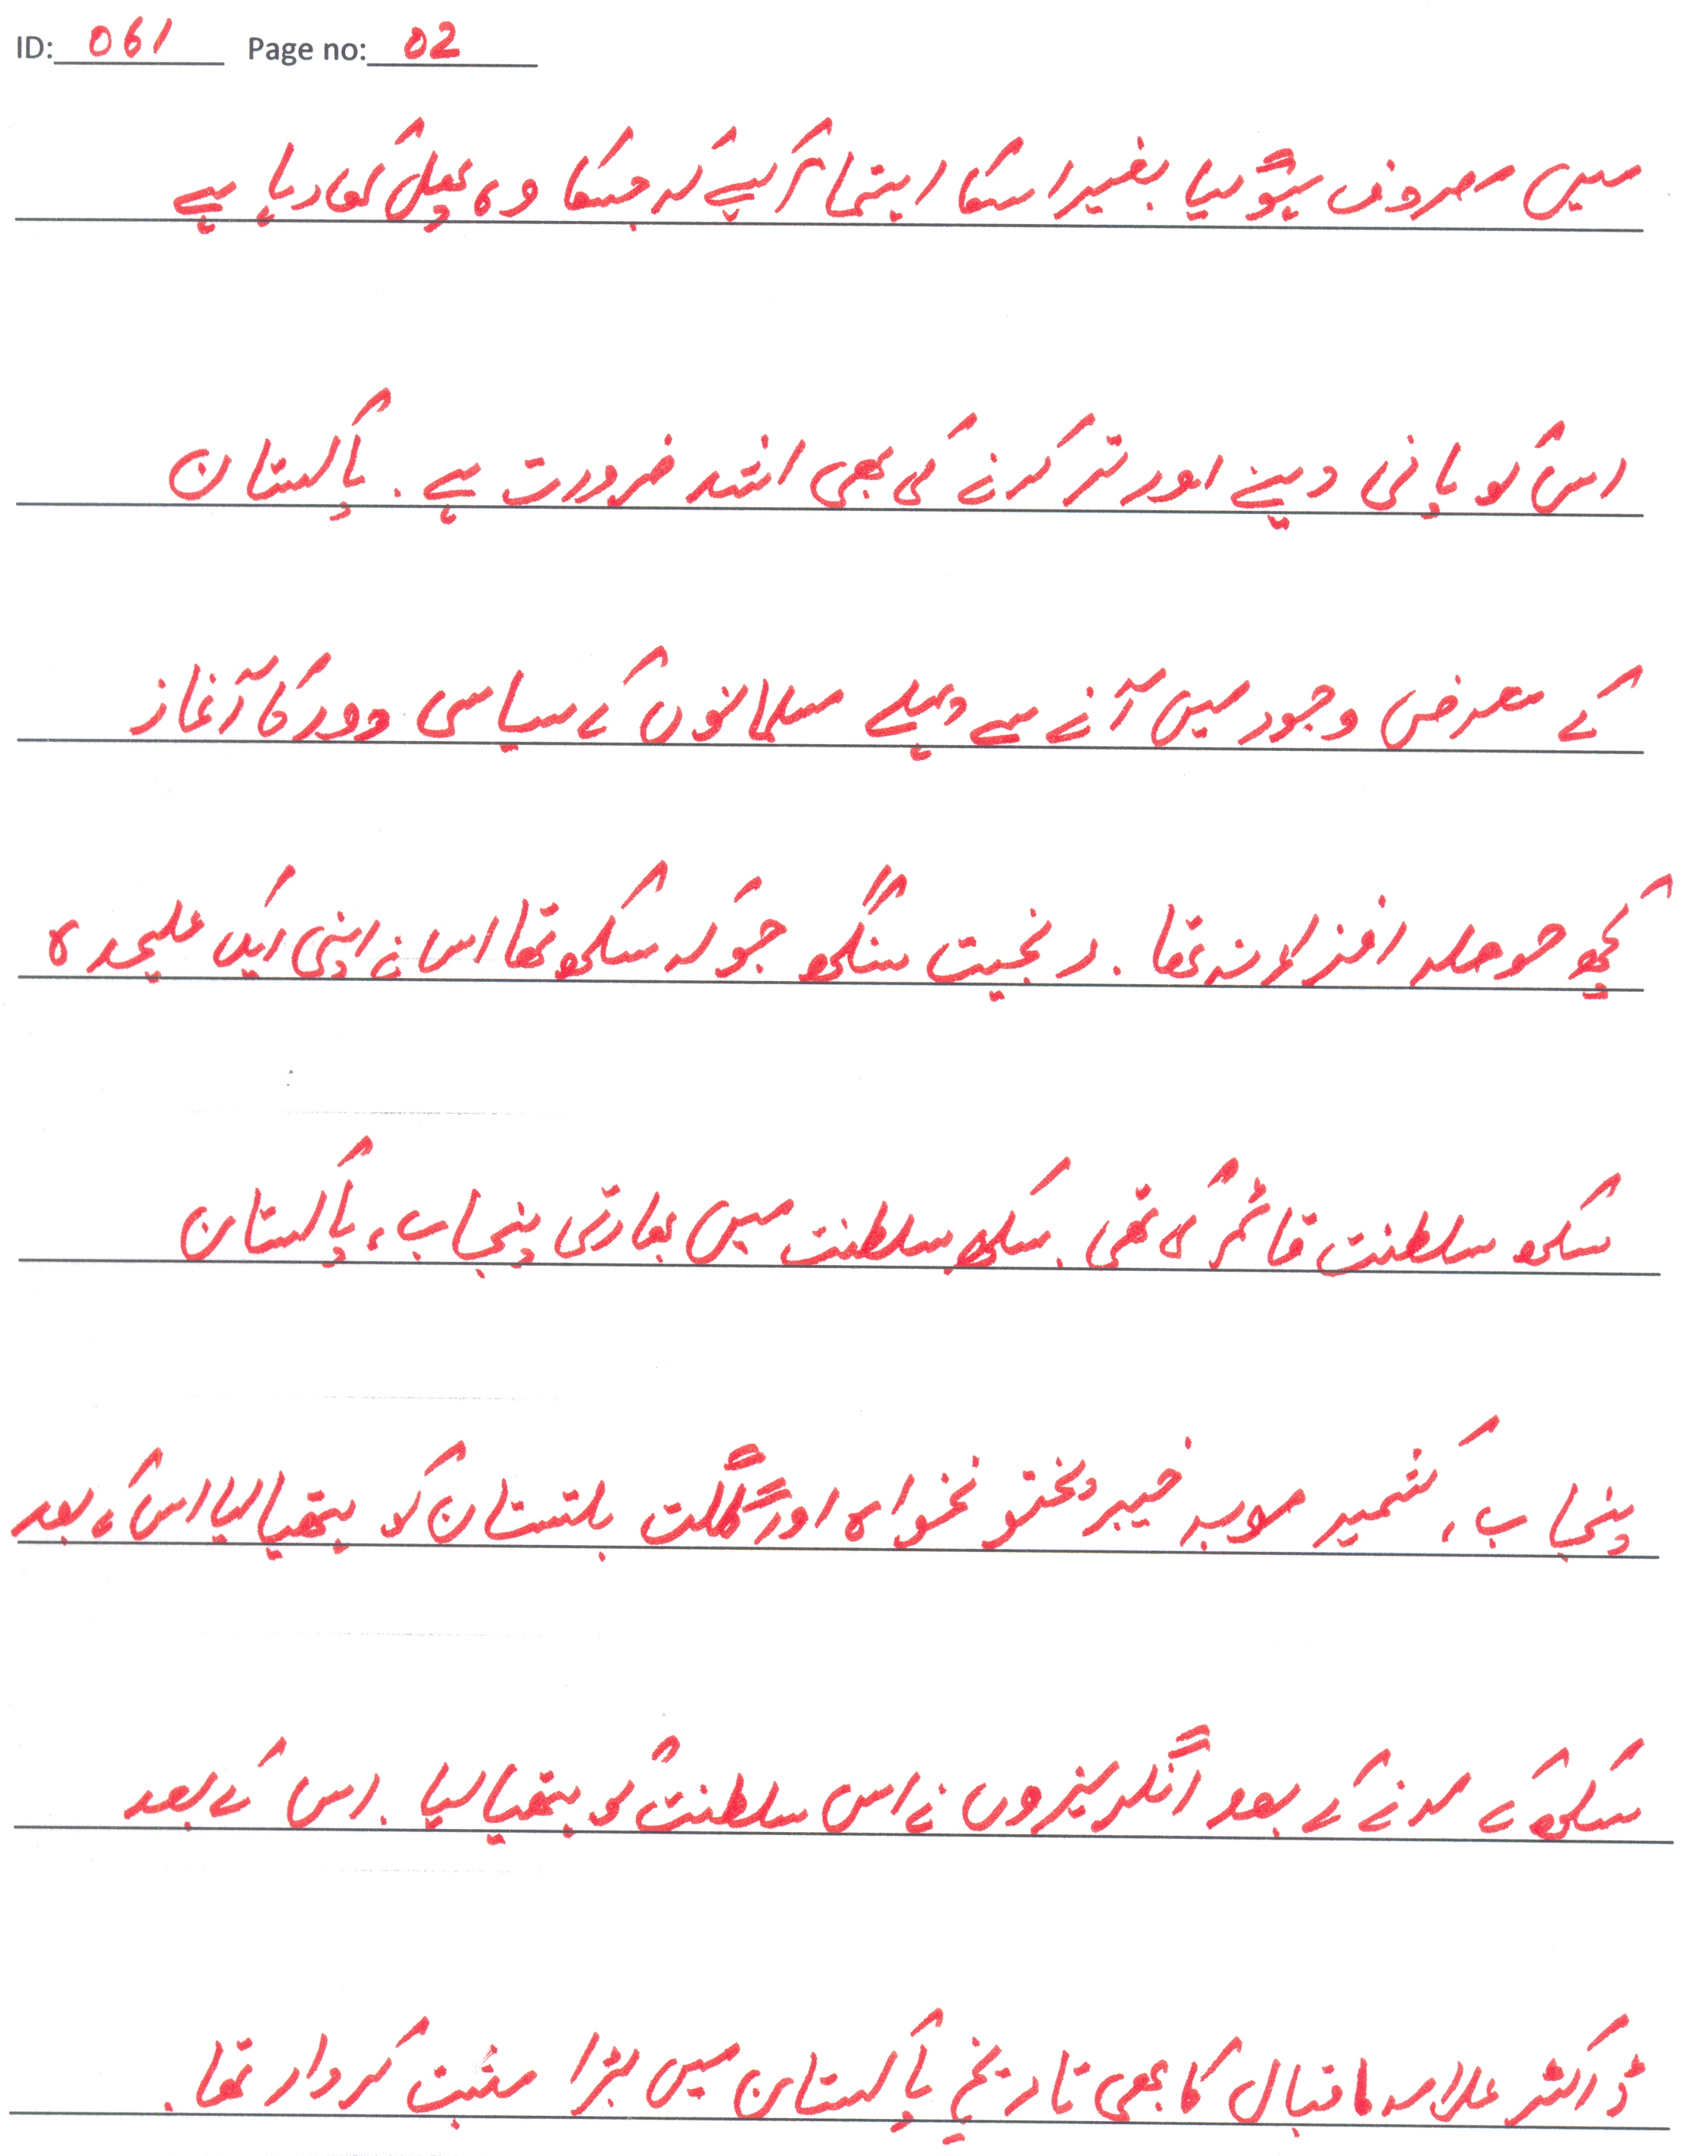 ID: 061 Page no: 02
میں مصروف ہوگیا بغیر اسکا اہتمام کیے کہ جسکا وہ پھل کھا رہا ہے
اس کو پانی دینے اور تر کرنے کی بھی اشد ضرورت ہے . پاکستان
کے معرض وجود میں آنے سے پہلے مسلمانوں کے سیاسی دور کا آغاز
کچھ حوصلہ افزاء نہ تھا . رنجیت سنگھ جو کہ سکھ تھا اس نے اپنی ایک علیحدہ
سکھ سلطنت قائم کی تھی . سکھ سلطنت میں بھارتی پنجاب، پاکستان
پنجاب، کشمیر صوبہ خیبر پختو نخواہ اور گلگت بلتستان کو ہتھیا لیا اس کے بعد
سکھ کے مرنے کے بعد انگریزوں نے اس سلطنت کو ہتھیا لیا . اس کے بعد
ڈاکٹر علامہ اقبال کا بھی تاریخ پاکستان میں بڑا مثبت کردار تھا .